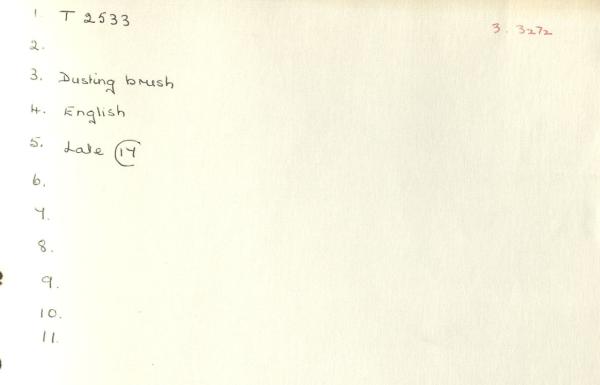 1. T 2533
3. 3272
2.
3. Dusting brush
4. English
5. Late 17
6.
7.
8.
9.
10.
11.